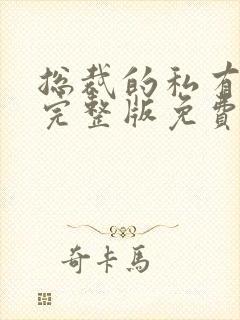 总裁的私有
完整版免費
奇卡馬